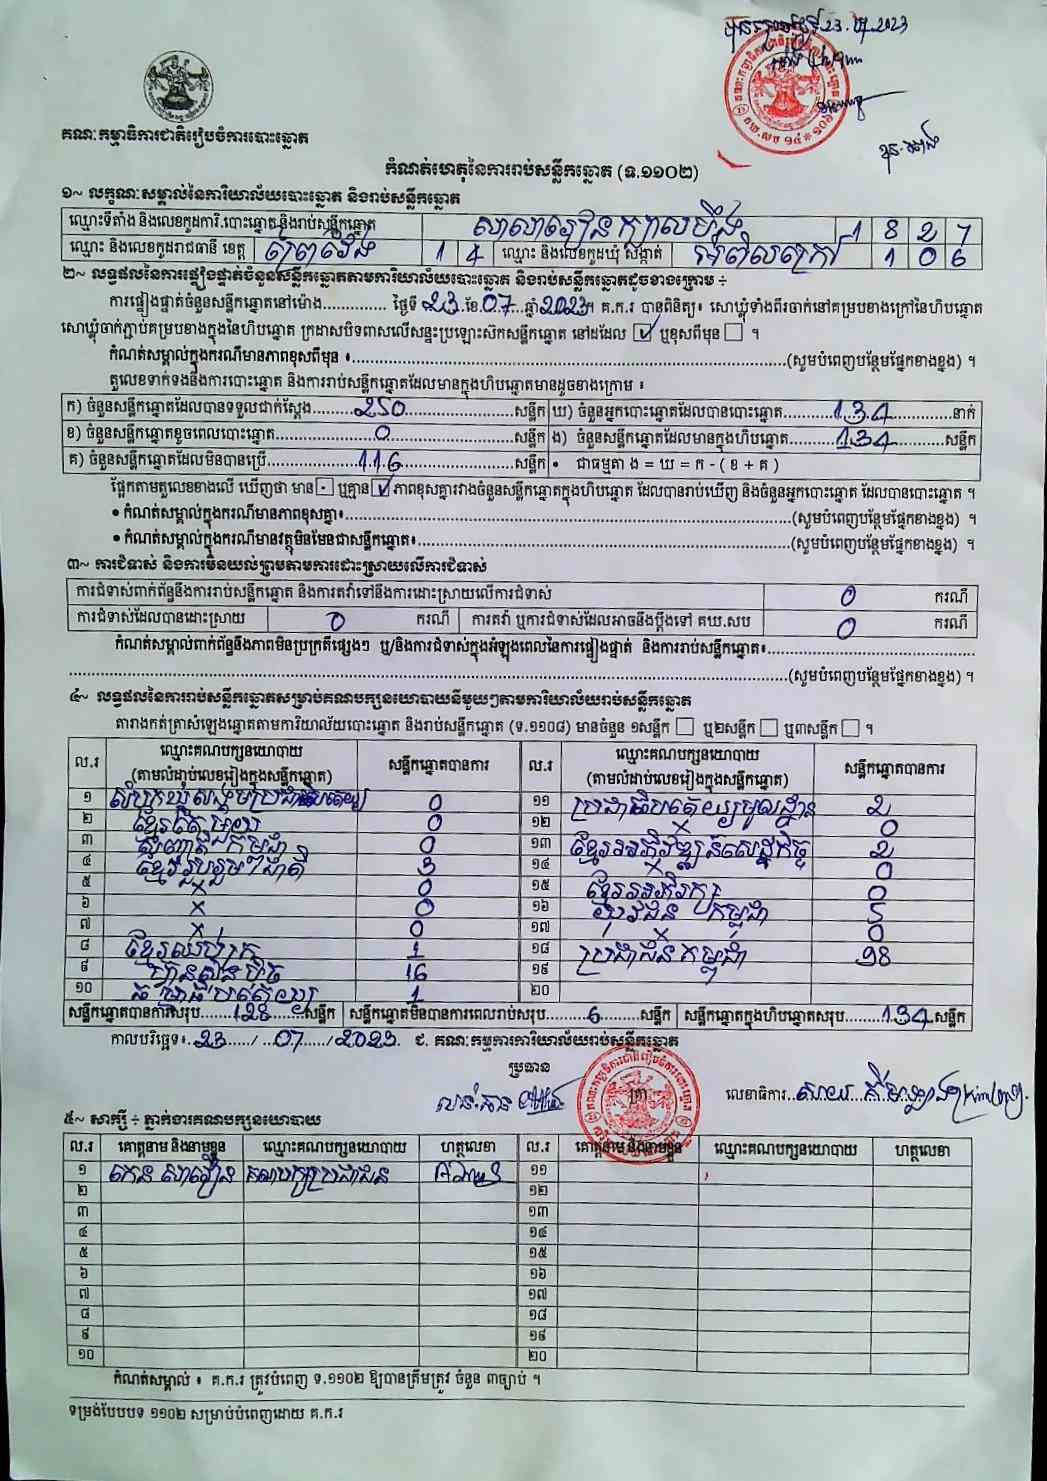 23.07.2023
គណៈកម្មាធិការជាតិរៀបចំការបោះឆ្នោត
កំណត់ហេតុនៃការរាប់សន្លឹកឆ្នោត (ទ.១១០២)
១~ លក្ខណៈសម្គាល់នៃការិយាល័យបោះឆ្នោត និងរាប់សន្លឹកឆ្នោត
ឈ្មោះទីតាំង និងលេខកូដការិ.បោះឆ្នោត និងរាប់សន្លឹកឆ្នោត សាលារៀនក្បាលបឹង 1 8 2 7
ឈ្មោះ និងលេខកូដរាជធានី ខេត្ត ព្រៃវែង 1 4 ឈ្មោះ និងលេខកូដឃុំ សង្កាត់ អំពិលក្រៅ 1 0 6
២~ លទ្ធផលនៃការផ្ទៀងផ្ទាត់ចំនួនសន្លឹកឆ្នោតតាមការិយាល័យបោះឆ្នោត និងរាប់សន្លឹកឆ្នោតដូចខាងក្រោម ÷
ការផ្ទៀងផ្ទាត់ចំនួនសន្លឹកឆ្នោតនៅម៉ោង.............. ថ្ងៃទី 23 ខែ 07 ឆ្នាំ 2023។ គ.ក.រ បានពិនិត្យ៖ សោឃ្លុំទាំងពីរចាក់នៅគម្របខាងក្រៅនៃហិបឆ្នោត
សោឃ្លុំចាក់ភ្ជាប់គម្របខាងក្នុងនៃហិបឆ្នោត ក្រដាសបិទពាសលើសន្ទះប្រឡោះសិកសន្លឹកឆ្នោត នៅដដែល ☑ ឬខុសពីមុន ☐ ។
កំណត់សម្គាល់ក្នុងករណីមានភាពខុសពីមុន ៖..............(សូមបំពេញបន្ថែមផ្នែកខាងខ្នង) ។
តួលេខទាក់ទងនឹងការបោះឆ្នោត និងការរាប់សន្លឹកឆ្នោតដែលមានក្នុងហិបឆ្នោតមានដូចខាងក្រោម ៖
ក) ចំនួនសន្លឹកឆ្នោតដែលបានទទួលជាក់ស្តែង.........250.........សន្លឹក ឃ) ចំនួនអ្នកបោះឆ្នោតដែលបានបោះឆ្នោត.........134.........នាក់
ខ) ចំនួនសន្លឹកឆ្នោតខូចពេលបោះឆ្នោត.........0.........សន្លឹក ង) ចំនួនសន្លឹកឆ្នោតដែលមានក្នុងហិបឆ្នោត.........134.........សន្លឹក
គ) ចំនួនសន្លឹកឆ្នោតដែលមិនបានប្រើ.........116.........សន្លឹក • ជាធម្មតា ង = ឃ = ក - ( ខ + គ )
ផ្អែកតាមតួលេខខាងលើ ឃើញថា មាន ☐ ឬគ្មាន ☑ ភាពខុសគ្នារវាងចំនួនសន្លឹកឆ្នោតក្នុងហិបឆ្នោត ដែលបានរាប់ឃើញ និងចំនួនអ្នកបោះឆ្នោត ដែលបានបោះឆ្នោត ។
• កំណត់សម្គាល់ក្នុងករណីមានភាពខុសគ្នា៖..............(សូមបំពេញបន្ថែមផ្នែកខាងខ្នង) ។
• កំណត់សម្គាល់ក្នុងករណីមានវត្ថុមិនមែនជាសន្លឹកឆ្នោត៖..............(សូមបំពេញបន្ថែមផ្នែកខាងខ្នង) ។
៣~ ការជំទាស់ និងការមិនយល់ព្រមតាមការដោះស្រាយលើការជំទាស់
ការជំទាស់ពាក់ព័ន្ធនឹងការរាប់សន្លឹកឆ្នោត និងការតវ៉ាទៅនឹងការដោះស្រាយលើការជំទាស់ 0 ករណី
ការជំទាស់ដែលបានដោះស្រាយ 0 ករណី ការតវ៉ា ឬការជំទាស់ដែលអាចនឹងប្តឹងទៅ គឃ.សប 0 ករណី
កំណត់សម្គាល់ពាក់ព័ន្ធនឹងភាពមិនប្រក្រតីផ្សេងៗ ឬ/និងការជំទាស់ក្នុងអំឡុងពេលនៃការផ្ទៀងផ្ទាត់ និងការរាប់សន្លឹកឆ្នោត៖..............
..............(សូមបំពេញបន្ថែមផ្នែកខាងខ្នង) ។
៤~ លទ្ធផលនៃការរាប់សន្លឹកឆ្នោតសម្រាប់គណបក្សនយោបាយនីមួយៗតាមការិយាល័យរាប់សន្លឹកឆ្នោត
តារាងកត់ត្រាសំឡេងឆ្នោតតាមការិយាល័យបោះឆ្នោត និងរាប់សន្លឹកឆ្នោត (ទ.១១០៨) មានចំនួន ១សន្លឹក ☐ ឬ២សន្លឹក ☐ ឬ៣សន្លឹក ☐ ។
ល.រ ឈ្មោះគណបក្សនយោបាយ (តាមលំដាប់លេខរៀងក្នុងសន្លឹកឆ្នោត) សន្លឹកឆ្នោតបានការ ល.រ ឈ្មោះគណបក្សនយោបាយ (តាមលំដាប់លេខរៀងក្នុងសន្លឹកឆ្នោត) សន្លឹកឆ្នោតបានការ
១ សំបុកឃ្មុំសង្គមប្រជាធិបតេយ្យ 0 ១១ ប្រជាធិបតេយ្យមូលដ្ឋាន 2
២ ខ្មែរតែមួយ 0 ១២ × 0
៣ កម្ពុជា 0 ១៣ ខ្មែរអភិវឌ្ឍន៍សេដ្ឋកិច្ច 2
៤ ខ្មែររួបរួមជាតិ 3 ១៤ × 0
៥ × 0 ១៥ ខ្មែរអភិរក្ស 0
៦ × 0 ១៦ យុវជនកម្ពុជា 5
៧ × 0 ១៧ × 0
៨ ខ្មែរឈប់ក្រ 1 ១៨ ប្រជាជនកម្ពុជា 98
៩ ហ្វ៊ុនស៊ិនប៉ិច 16 ១៩
១០ ធម្មាធិបតេយ្យ 1 ២០
សន្លឹកឆ្នោតបានការសរុប.......128.......សន្លឹក សន្លឹកឆ្នោតមិនបានការពេលរាប់សរុប.......6.......សន្លឹក សន្លឹកឆ្នោតក្នុងហិបឆ្នោតសរុប.......134.......សន្លឹក
កាលបរិច្ឆេទ៖..23..../...07..../2023. ជ. គណៈកម្មការការិយាល័យរាប់សន្លឹកឆ្នោត
ប្រធាន
លេខាធិការ
៥~ សាក្សី ÷ ភ្នាក់ងារគណបក្សនយោបាយ
ល.រ គោត្តនាម និងនាមខ្លួន ឈ្មោះគណបក្សនយោបាយ ហត្ថលេខា ល.រ គោត្តនាម និងនាមខ្លួន ឈ្មោះគណបក្សនយោបាយ ហត្ថលេខា
១ កេន សារឿន គណបក្សប្រជាជន ១១
២ ១២
៣ ១៣
៤ ១៤
៥ ១៥
៦ ១៦
៧ ១៧
៨ ១៨
៩ ១៩
១០ ២០
កំណត់សម្គាល់ ៖ គ.ក.រ ត្រូវបំពេញ ទ.១១០២ ឱ្យបានត្រឹមត្រូវ ចំនួន ៣ច្បាប់ ។
ទម្រង់បែបបទ ១១០២ សម្រាប់បំពេញដោយ គ.ក.រ